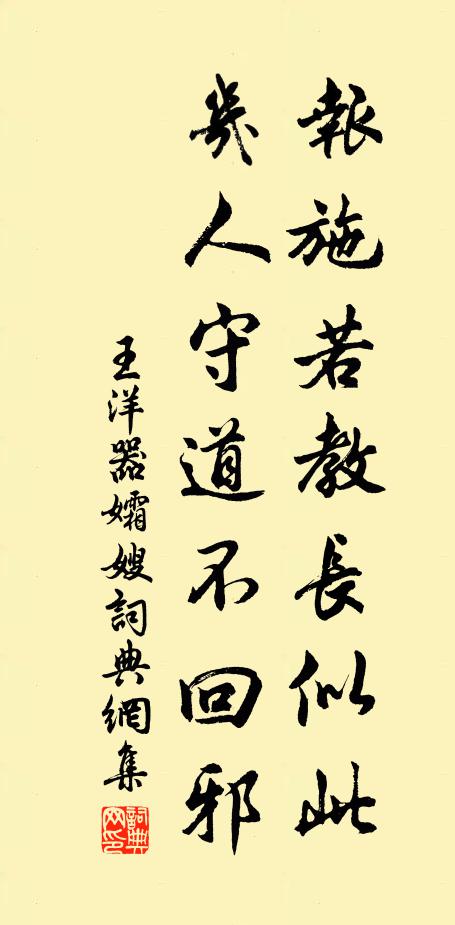 報施若教長似此
幾人守道不回邪
王洋器孀嫂詞典網集
詞典網印